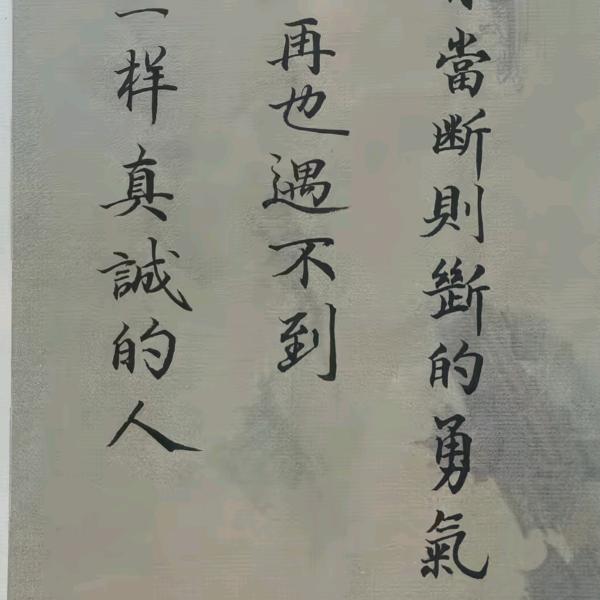 當断則斷的勇氣
再也遇不到
一样真誠的人